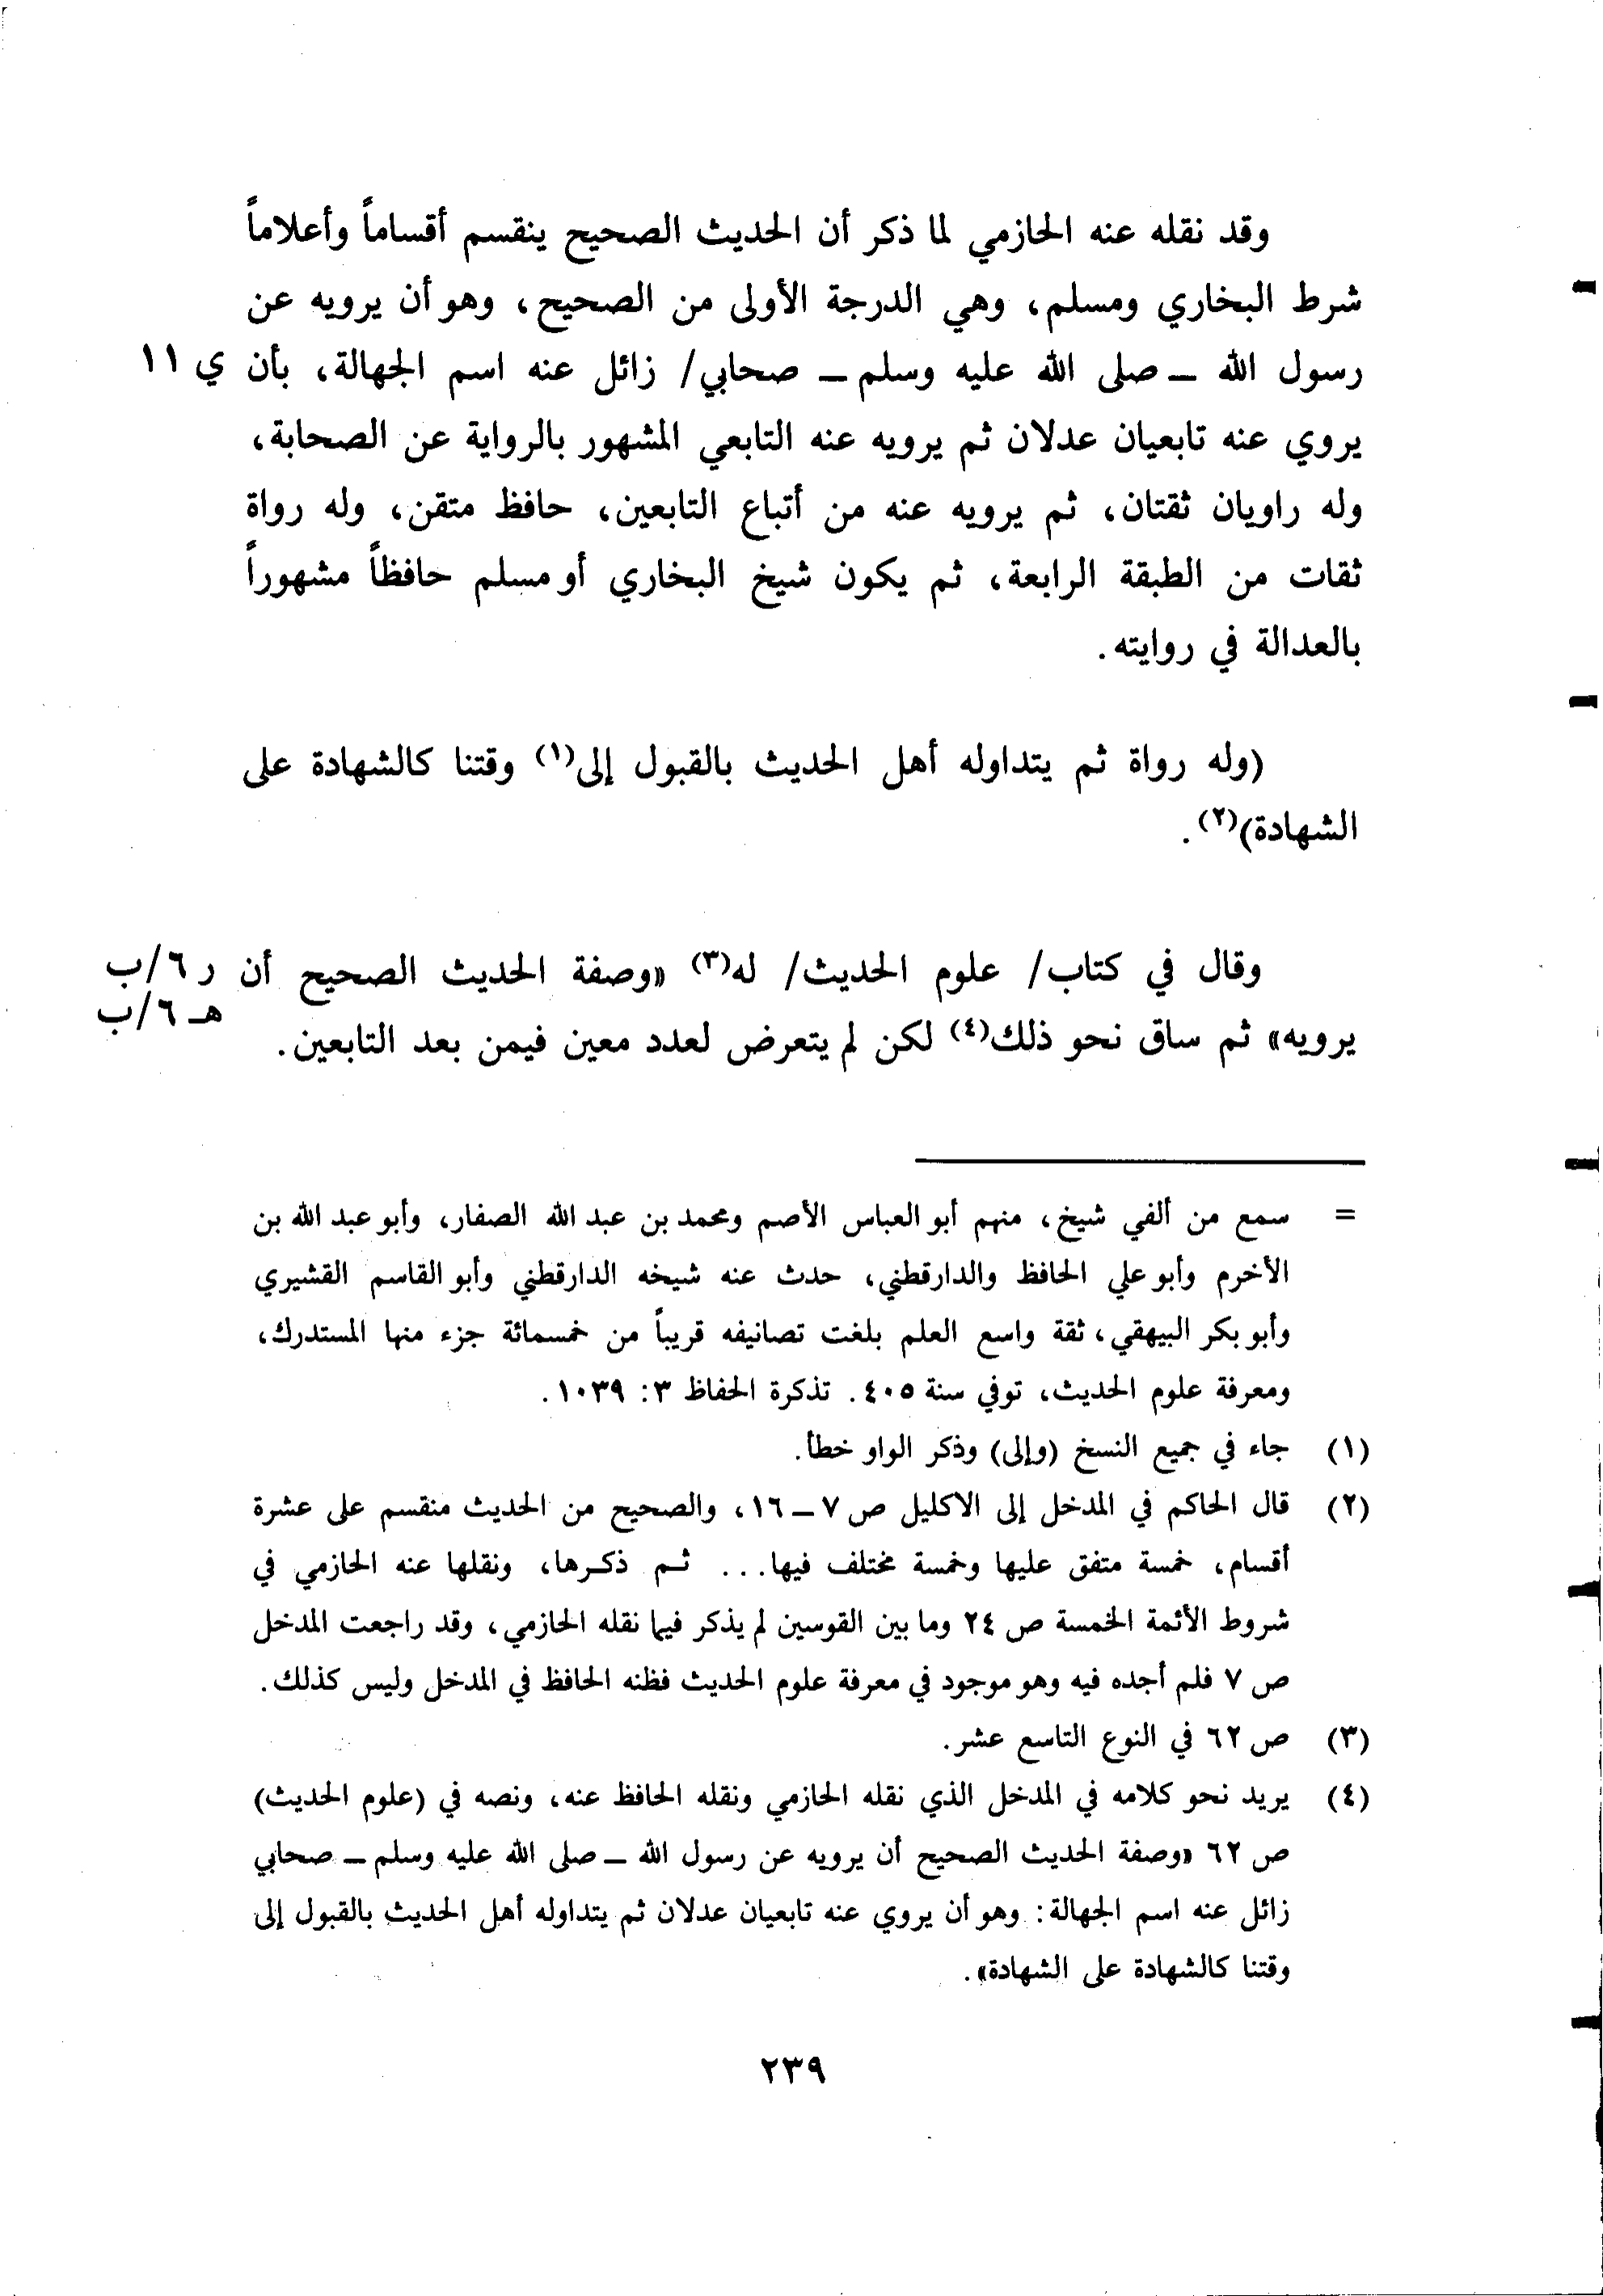 وقد نقله عنه الحازمي لما ذكر أن الحديث الصحيح ينقسم أقساماً وأعلاماً
شرط البخاري ومسلم، وهي الدرجة الأولى من الصحيح، وهو أن يرويه عن
رسول الله – صلى الله عليه وسلم – صحابي/ زائل عنه اسم الجهالة، بأن ي ١١
يروي عنه تابعيان عدلان ثم يرويه عنه التابعي المشهور بالرواية عن الصحابة،
وله راويان ثقتان، ثم يرويه عنه من أتباع التابعين، حافظ متقن، وله رواة
ثقات من الطبقة الرابعة، ثم يكون شيخ البخاري أو مسلم حافظاً مشهوراً
بالعدالة في روايته.
(وله رواة ثم يتداوله أهل الحديث بالقبول إلى(١) وقتنا كالشهادة على
الشهادة)(٢).
وقال في كتاب/ علوم الحديث/ له(٣) «وصفة الحديث الصحيح أن ر ٦/ب
هـ ٦/ب
يرويه» ثم ساق نحو ذلك(٤) لكن لم يتعرض لعدد معين فيمن بعد التابعين.
= سمع من ألفي شيخ، منهم أبو العباس الأصم ومحمد بن عبد الله الصفار، وأبو عبد الله بن
الأخرم وأبو علي الحافظ والدارقطني، حدث عنه شيخه الدارقطني وأبو القاسم القشيري
وأبو بكر البيهقي، ثقة واسع العلم بلغت تصانيفه قريباً من خمسمائة جزء منها المستدرك،
ومعرفة علوم الحديث، توفي سنة ٤٠٥. تذكرة الحفاظ ٣: ١٠٣٩.
(١) جاء في جميع النسخ (وإلى) وذكر الواو خطأ.
(٢) قال الحاكم في المدخل إلى الاكليل ص ٧ – ١٦، والصحيح من الحديث منقسم على عشرة
أقسام، خمسة متفق عليها وخمسة مختلف فيها... ثـم ذكـرها، ونقلها عنه الحازمي في
شروط الأئمة الخمسة ص ٢٤ وما بين القوسين لم يذكر فيما نقله الحازمي، وقد راجعت المدخل
ص ٧ فلم أجده فيه وهو موجود في معرفة علوم الحديث فظنه الحافظ في المدخل وليس كذلك.
(٣) ص ٦٢ في النوع التاسع عشر.
(٤) يريد نحو كلامه في المدخل الذي نقله الحازمي ونقله الحافظ عنه، ونصه في (علوم الحديث)
ص ٦٢ «وصفة الحديث الصحيح أن يرويه عن رسول الله – صلى الله عليه وسلم – صحابي
زائل عنه اسم الجهالة: وهو أن يروي عنه تابعيان عدلان ثم يتداوله أهل الحديث بالقبول إلى
وقتنا كالشهادة على الشهادة».
٢٣٩